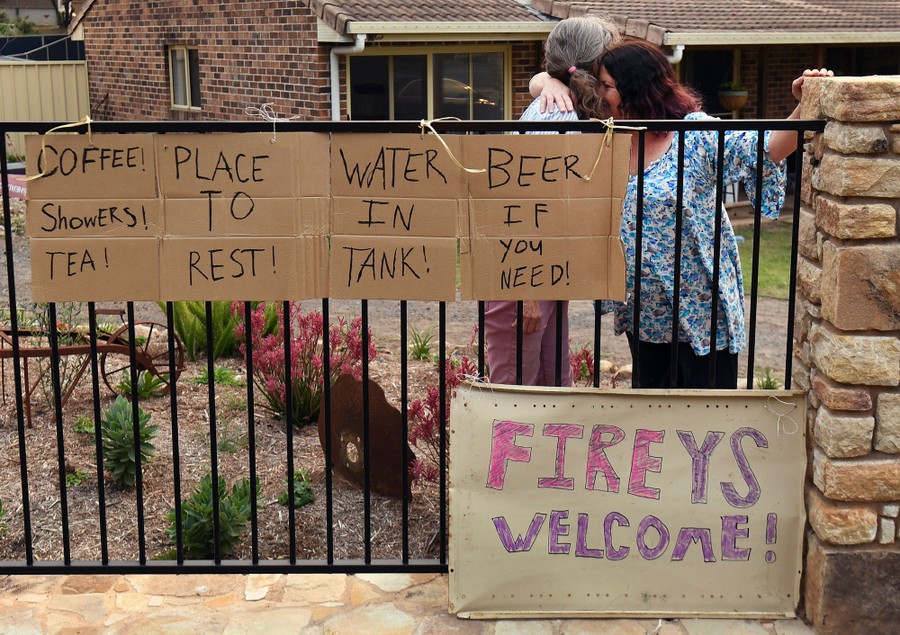 COFFEE!
SHOWERS!
TEA!
PLACE
TO
REST!
WATER
IN
TANK!
BEER
IF
YOU
NEED!
FIREYS
WELCOME!